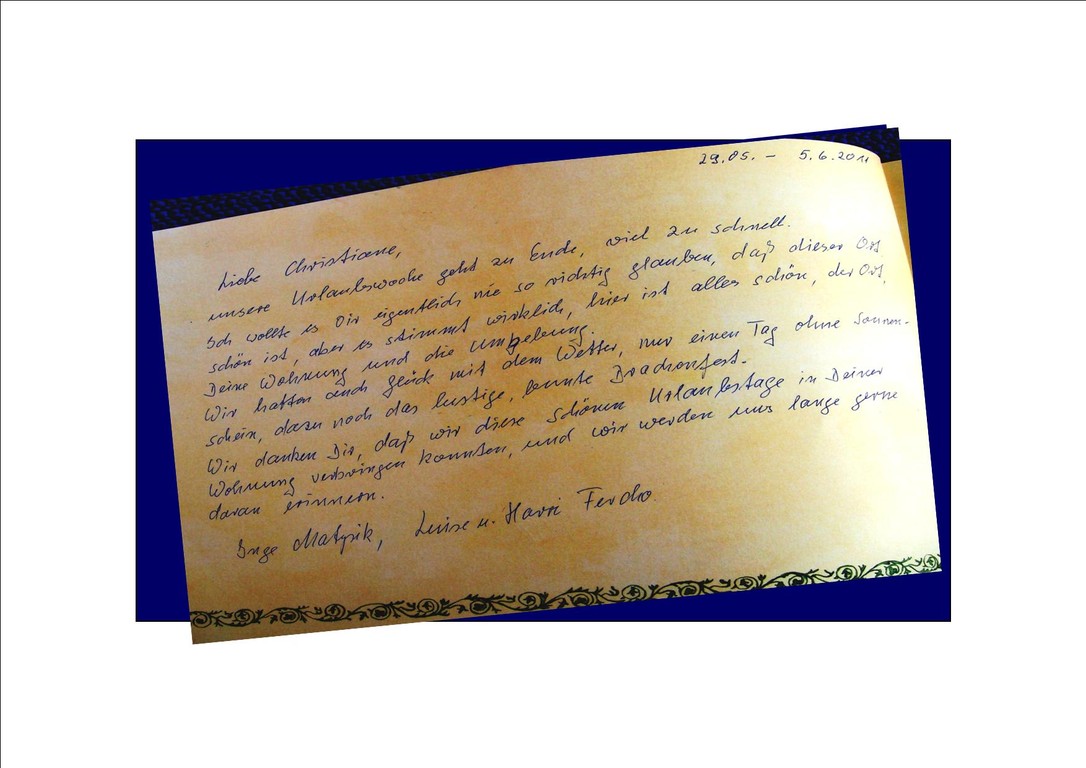 29.05. - 5.6.2011
Liebe Christiane,
unsere Urlaubswoche geht zu Ende, viel zu schnell.
Ich wollte es Dir eigentlich nie so richtig glauben, daß dieser Ort
schön ist, aber es stimmt wirklich, hier ist alles schön, der Ort,
Deine Wohnung und die Umgebung.
Wir hatten auch Glück mit dem Wetter, nur einen Tag ohne Sonnen-
schein, dazu noch das lustige, bunte Drachenfest.
Wir danken Dir, daß wir diese schönen Urlaubstage in Deiner
Wohnung verbringen konnten, und wir werden uns lange gerne
daran erinnern.
Inge Matysik, Luise u. Harri